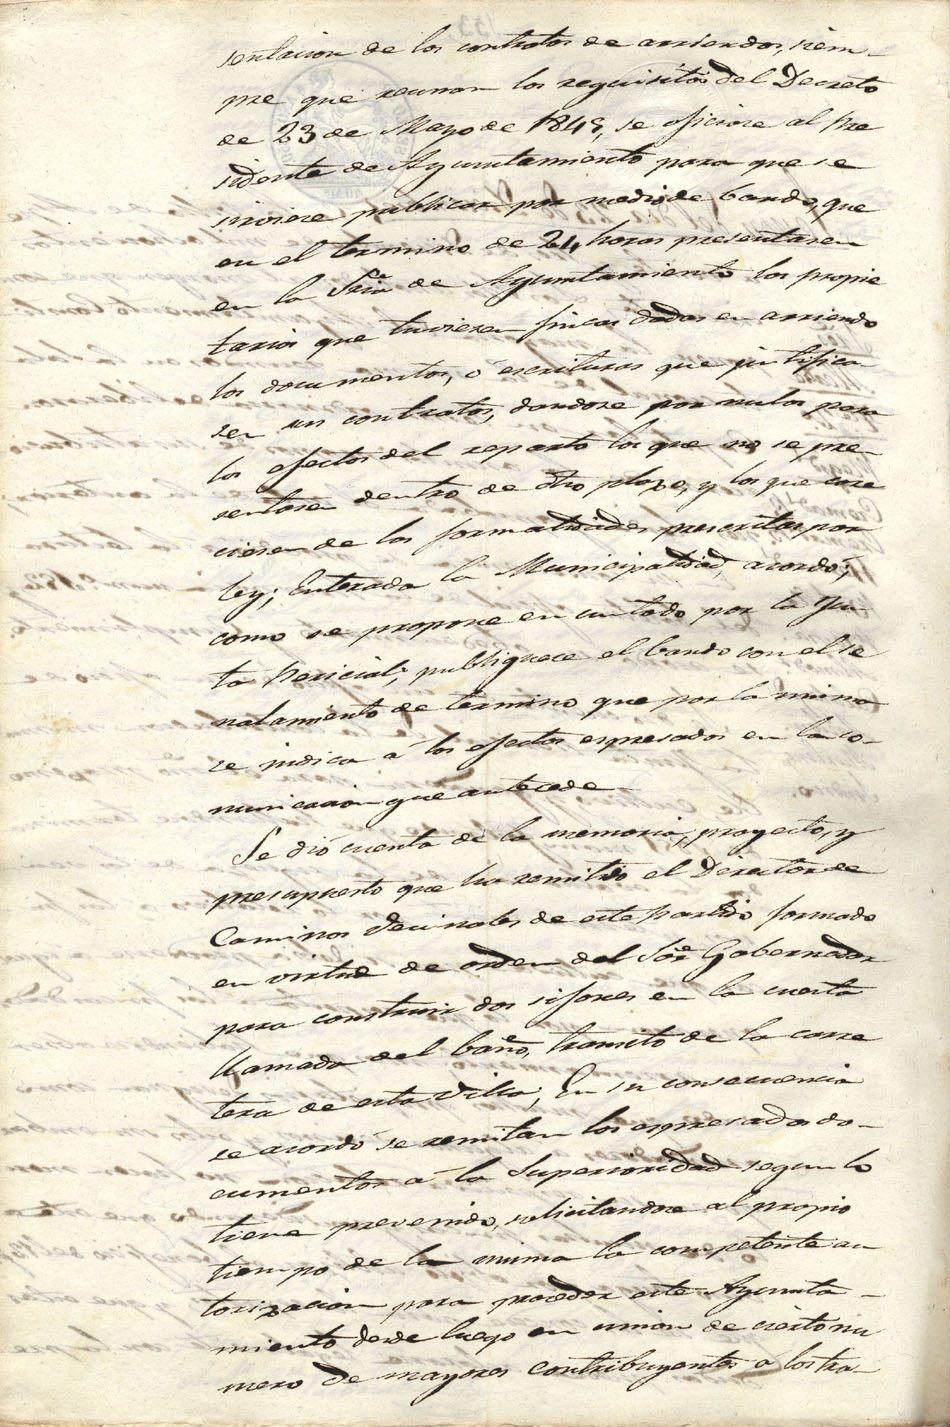 sentacion de los contratos de arriendos, siem-
pre que reunan los requisitos del Decreto
de 23 de Mayo de 1845, se oficiase al Pre
sidente de Ayuntamiento para que se
sirviese publicar por medio de bando, que
en el termino de 24 horas presentasen
en la Sría de Ayuntamiento los propie
tarios que tuviesen fincas dadas en arriendo
los documentos, ó escrituras que justifica
sen sus contratos, dandose por nulos para
los efectos del reparto los que no se pre-
sentasen dentro de dho plazo, y los que care
ciesen de las formalidades prescritas por
ley; Enterada la Municipalidad, acordó;
como se propone en un todo por la Jun
ta Pericial; publiquece el bando con el se
nalamiento de termino que por la misma
se indica á los efectos espresados en la co-
municacion que antecede
Se dió cuenta de la memoria, proyecto, y
presupuesto que ha remitido el Director de
Caminos Vecinales de este Partido formado
en virtud de orden del Sor Gobernador
para construir dos sifones en la cuesta
llamada del baño, transito de la carre
tera de esta Villa; En su consecuencia
se acordó se remitan los espresados do-
cumentos á la Superioridad segun lo
tiene prevenido, solicitandose al propio
tiempo de la misma la competente au
torizacion para proceder este Ayunta-
miento desde luego en union de cierto nu
mero de mayores contribuyentes a los tra-